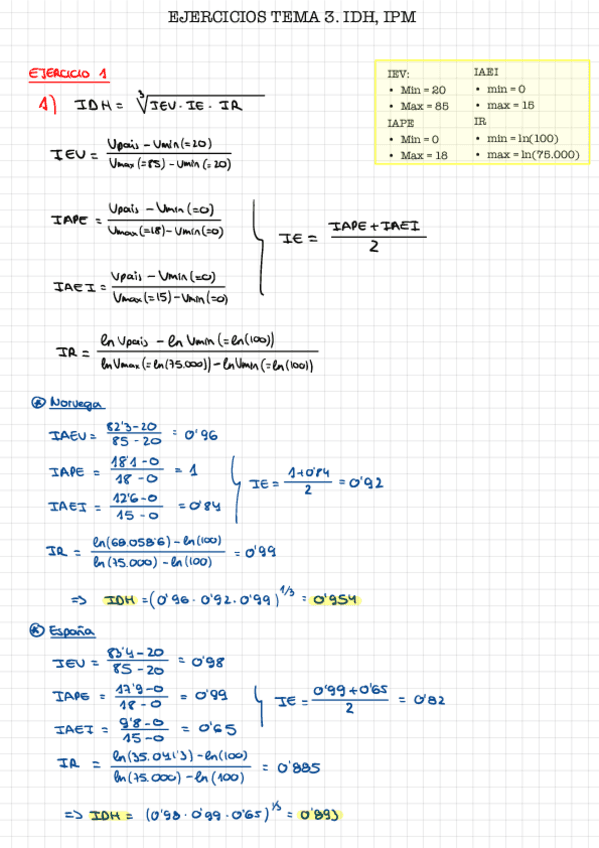 EJERCICIOS TEMA 3. IDH, IPM
EJERCICIO 1
IEV:
• Min = 20
• Max = 85
IAPE
• Min = 0
• Max = 18
IAEI
• min = 0
• max = 15
IR
• min = ln(100)
• max = ln(75.000)
1) IDH = ∛IEV · IE · IR
IEV = Vpais - Vmin(=20) / Vmax(=85) - Vmin(=20)
IAPE = Vpais - Vmin(=0) / Vmax(=18) - Vmin(=0)
IAEI = Vpais - Vmin(=0) / Vmax(=15) - Vmin(=0)
IE = IAPE + IAEI / 2
IR = ln Vpais - ln Vmin(=ln(100)) / ln Vmax(=ln(75.000)) - ln Vmin(=ln(100))
Noruega
IAEV = 82'3-20 / 85-20 = 0'96
IAPE = 18'1-0 / 18-0 = 1
IAEI = 12'6-0 / 15-0 = 0'84
IE = 1+0'84 / 2 = 0'92
IR = ln(68.058'6) - ln(100) / ln(75.000) - ln(100) = 0'99
=> IDH = (0'96 · 0'92 · 0'99)^1/3 = 0'954
España
IEV = 83'4-20 / 85-20 = 0'98
IAPE = 17'9-0 / 18-0 = 0'99
IAEI = 9'8-0 / 15-0 = 0'65
IE = 0'99+0'65 / 2 = 0'82
IR = ln(35.041'3) - ln(100) / ln(75.000) - ln(100) = 0'885
=> IDH = (0'98 · 0'99 · 0'65)^1/3 = 0'893